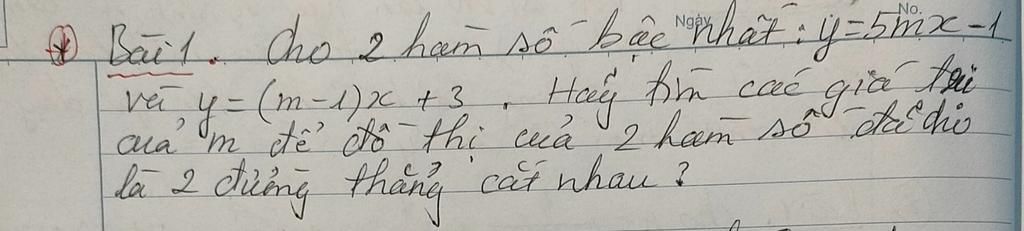 Bài 1. Cho 2 hàm số bậc nhất: y=5mx-1
Ngày No.
và y=(m-1)x+3. Hãy tìm các giá trị
của m để đồ thị của 2 hàm số đã cho
là 2 đường thẳng cắt nhau?